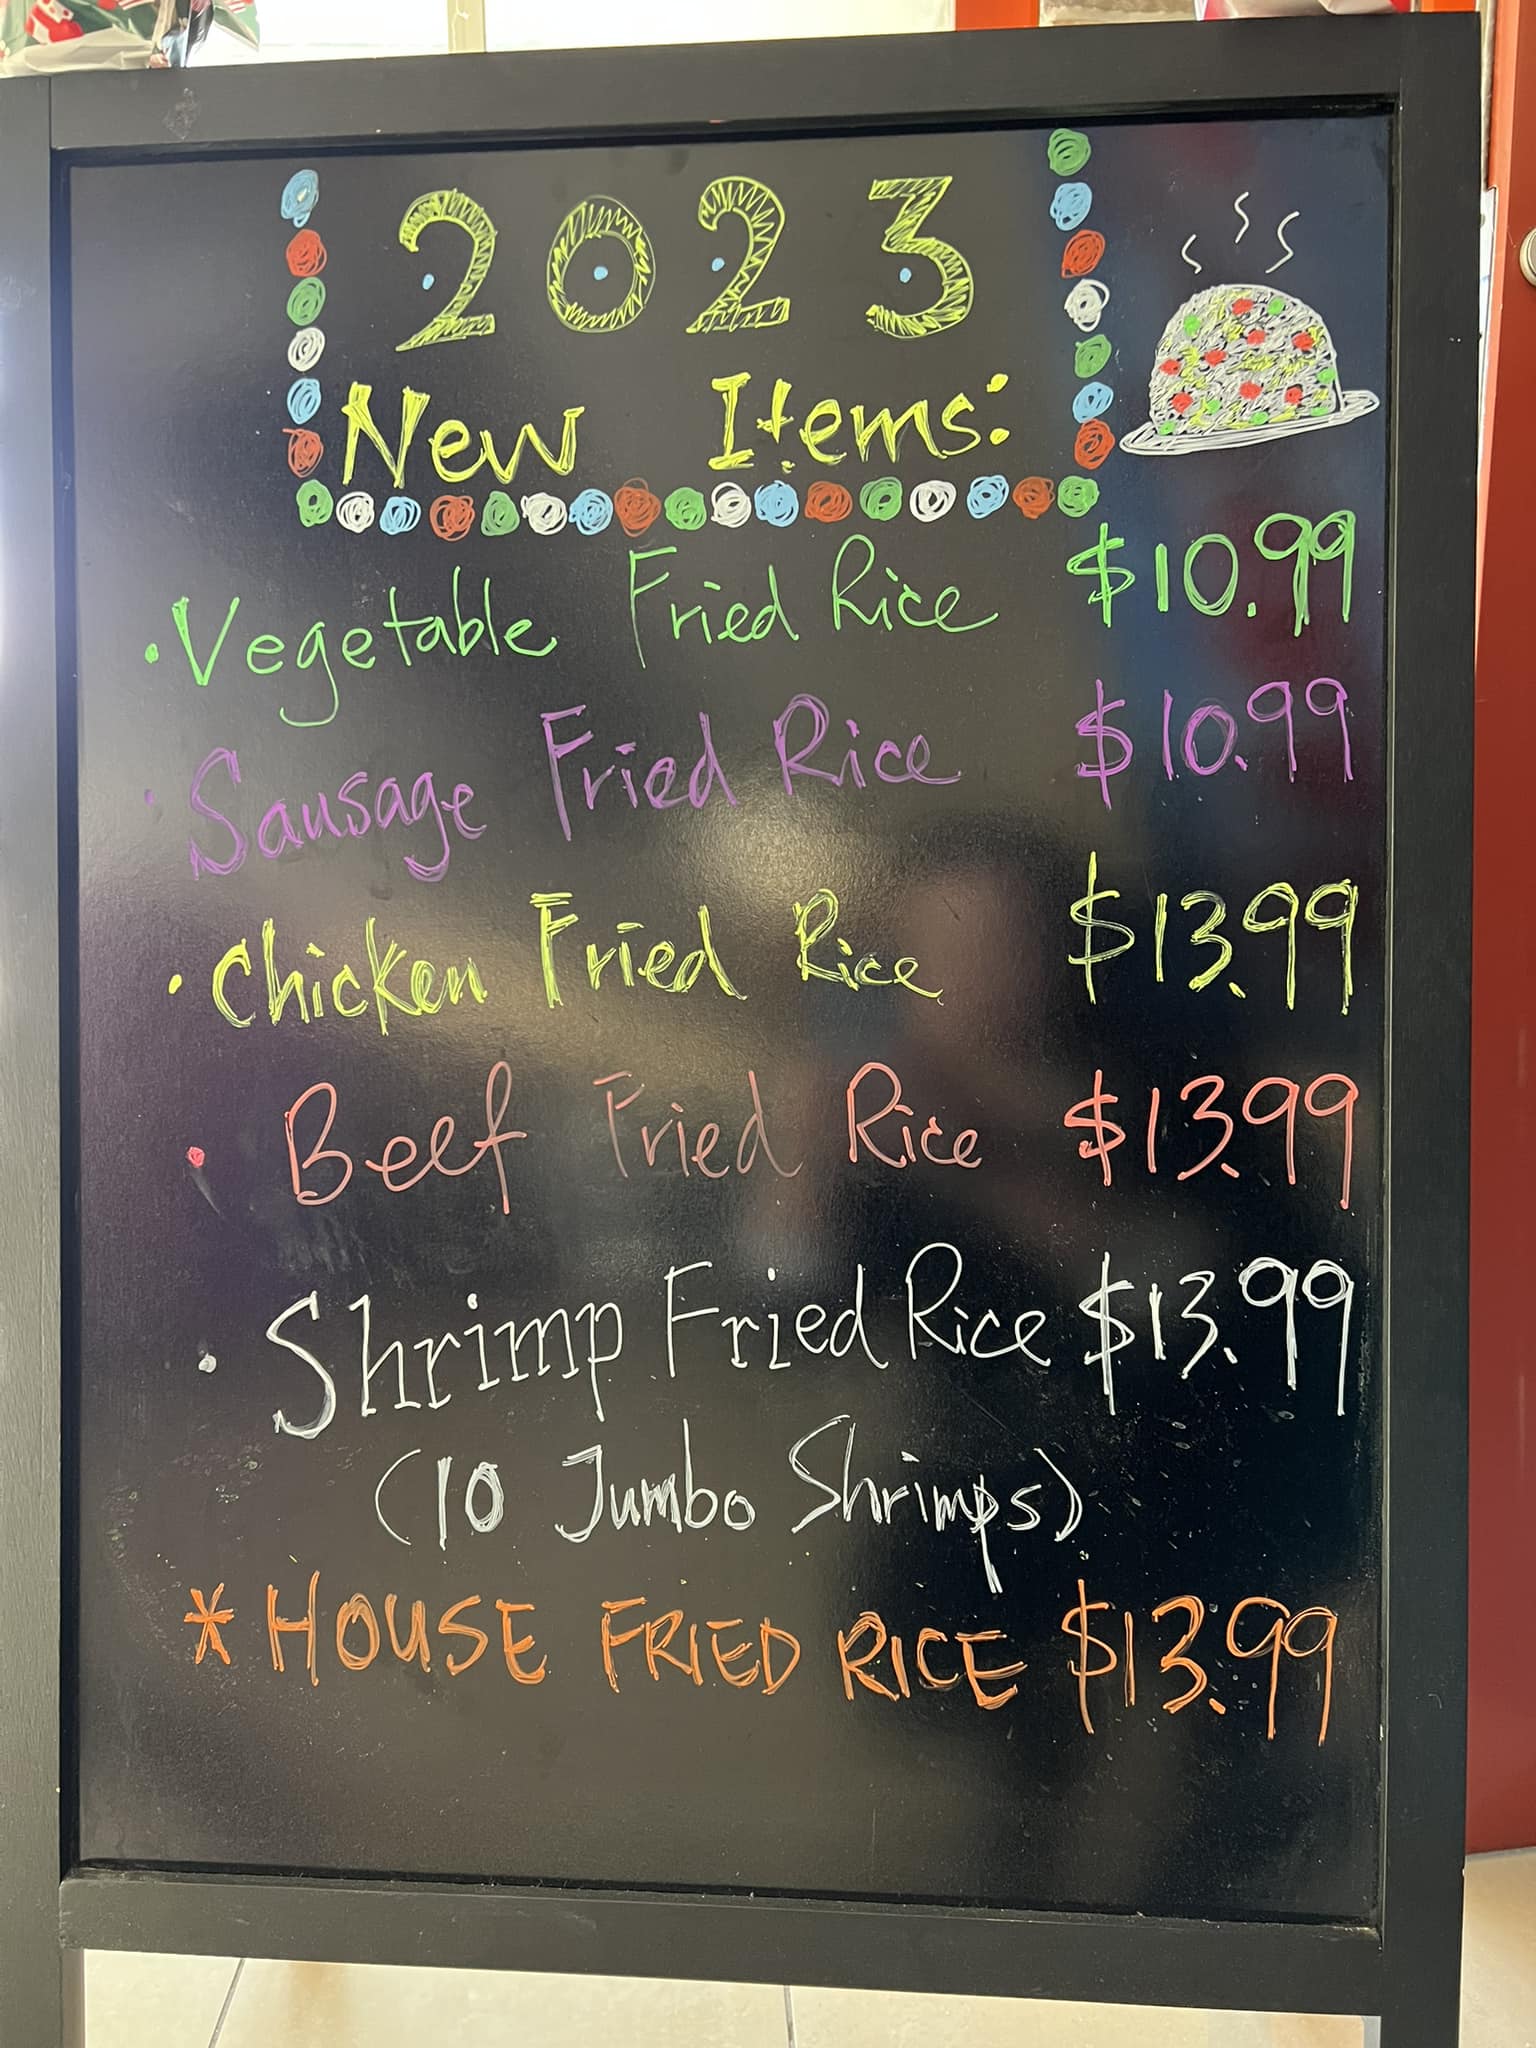 2023
New Items:
• Vegetable Fried Rice $10.99
• Sausage Fried Rice $10.99
• Chicken Fried Rice $13.99
• Beef Fried Rice $13.99
• Shrimp Fried Rice $13.99
(10 Jumbo Shrimps)
* HOUSE FRIED RICE $13.99